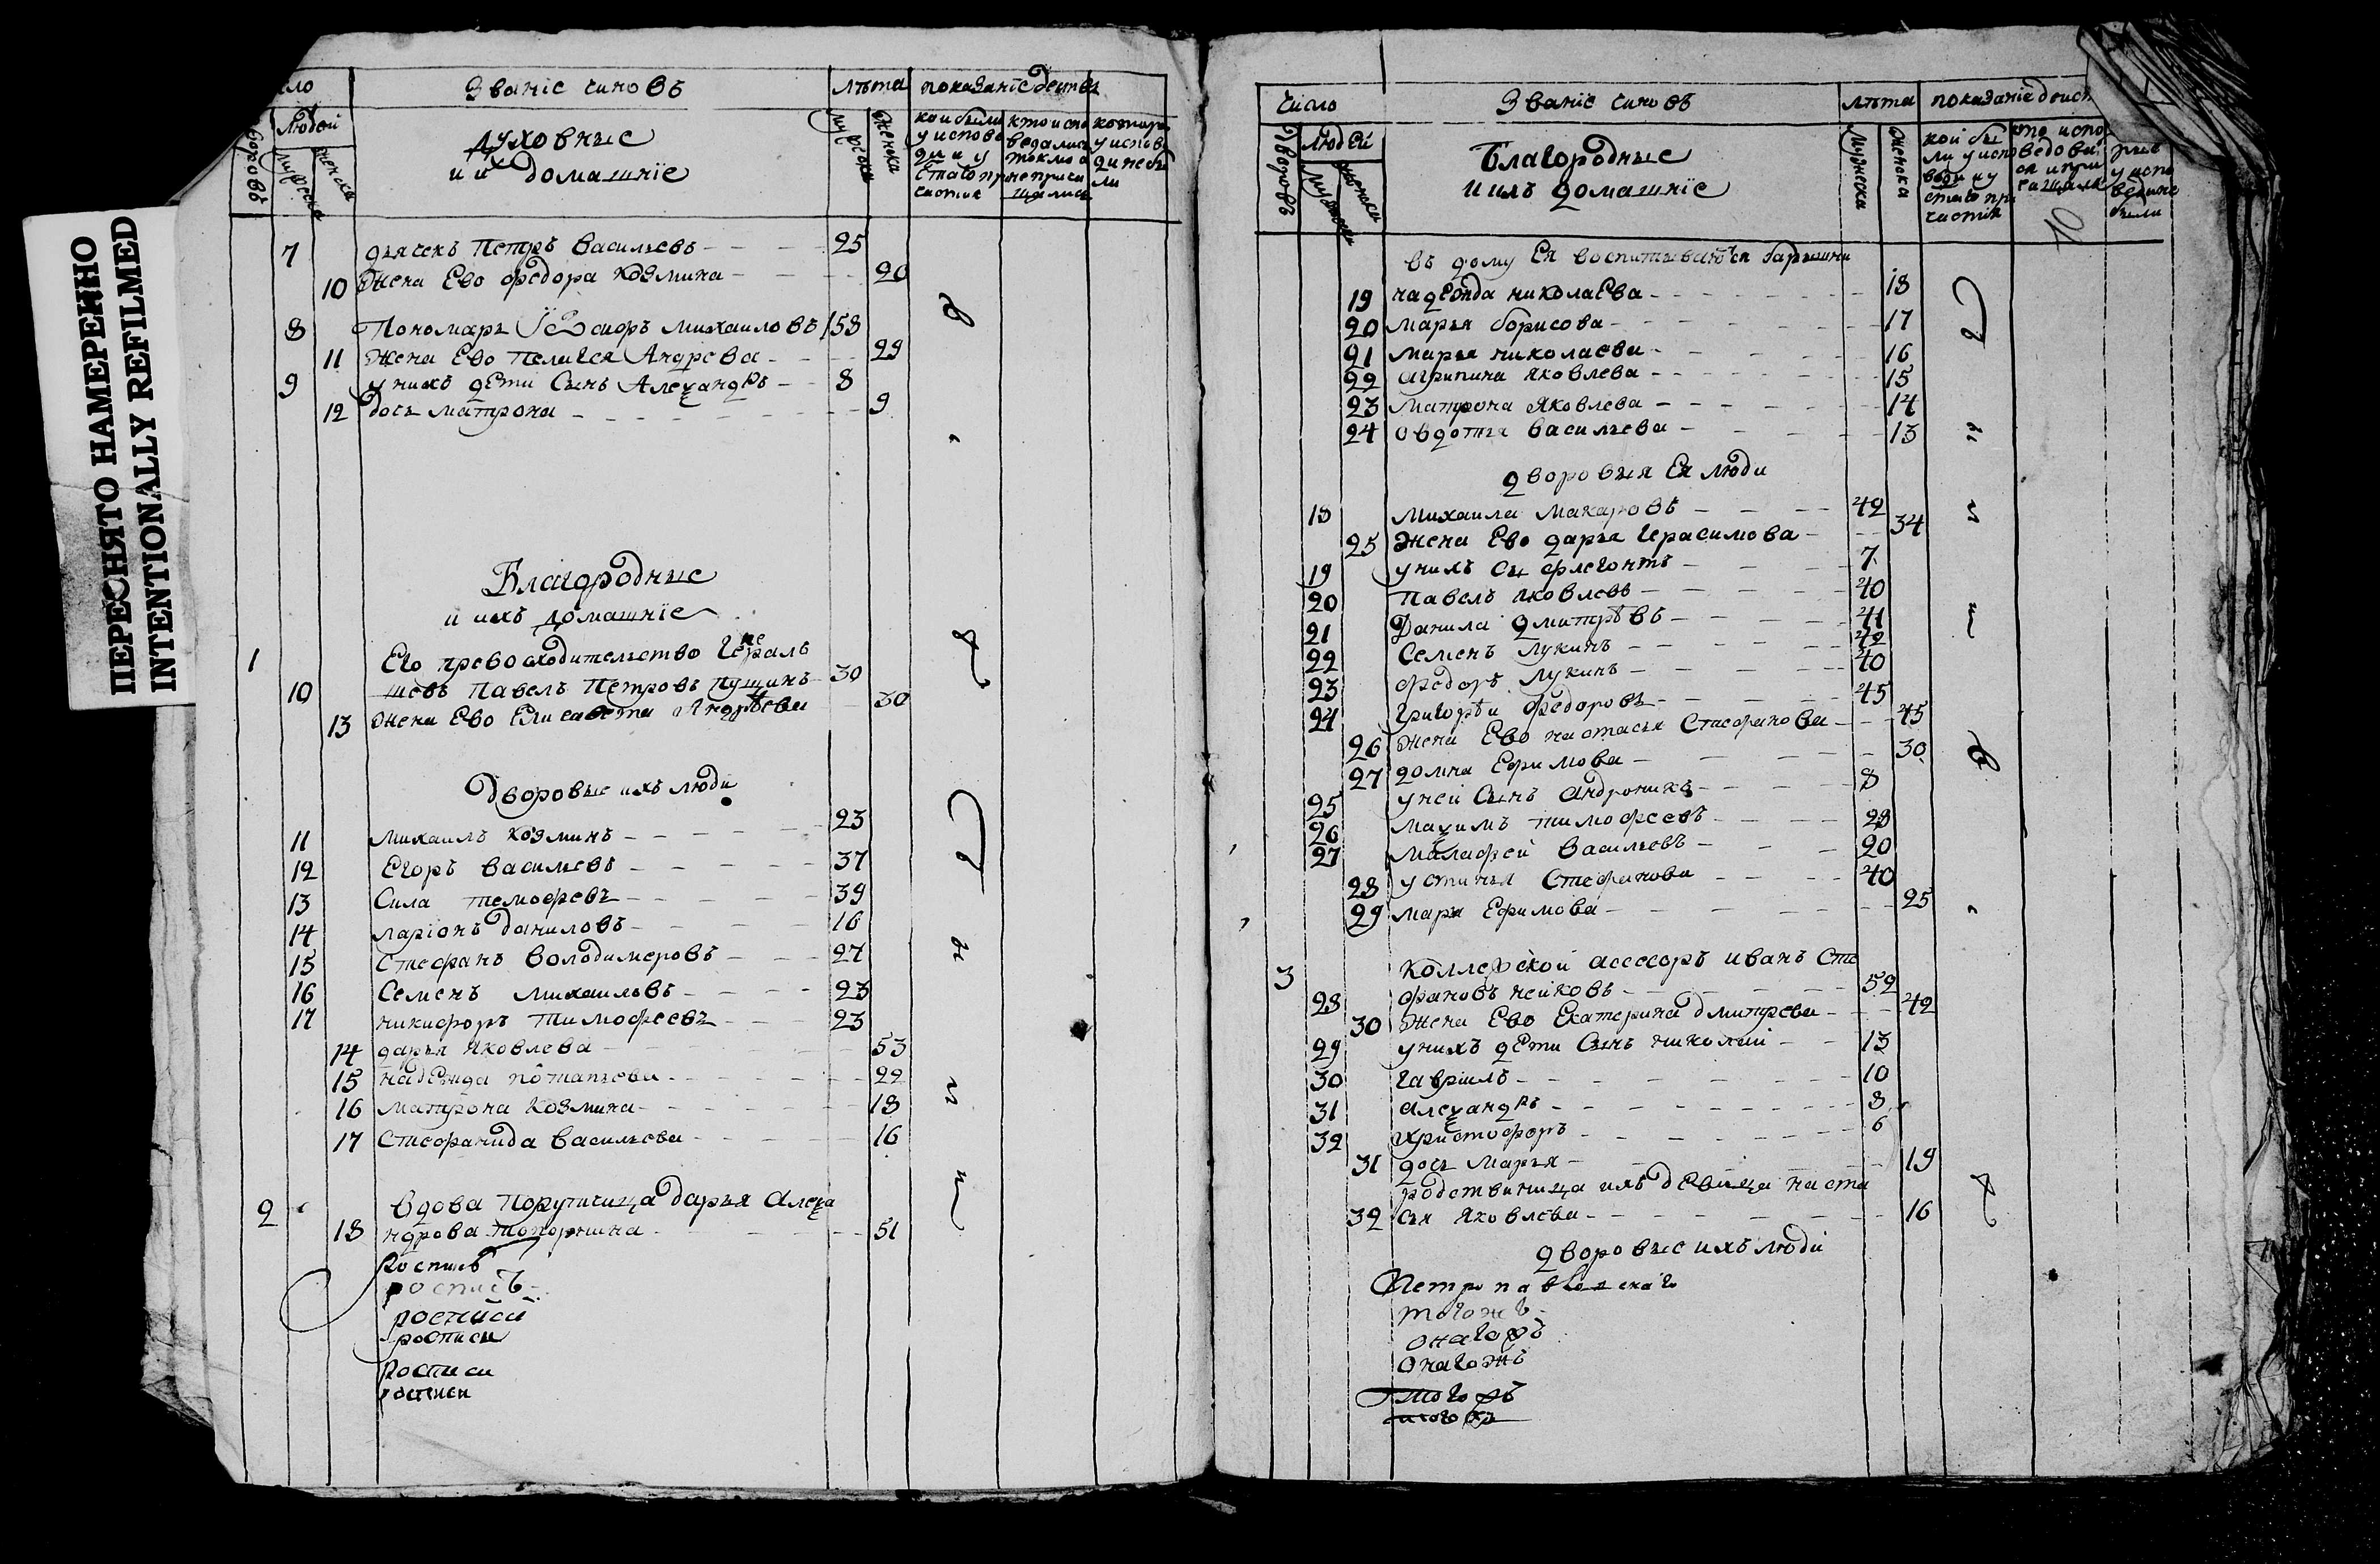 ПЕРЕСНЯТО НАМЕРЕННО
INTENTIONALLY REFILMED
Званіе чиновъ лѣта показаніе действ
Людей
дворовъ мужеска женска
духовные
и ихъ домашніе
мужеска женска
кои были у исповеди и у стаго причастия
кто исповедались токмо а не причащались
которые у исповеди не были
7 дьячекъ Петръ Васильевъ 25
10 Жена Ево федора козмина 20
8 Пономарь Їѡсифъ михаиловъ 58
11 Жена Ево Пелагея Андрева 29
9 у нихъ дети Сынъ Алеѯандръ 8
12 дочь матрона 9
Благородные
и ихъ домашніе
1 Его превосходительство Генераль
10 шевъ Павелъ Петровъ Пущинъ 30
13 жена Ево Елисавета Андрѣева 30
Дворовые ихъ люди
11 михаилъ козминъ 23
12 Егоръ васильевъ 37
13 Сила темофевъ 39
14 ларіонъ даниловъ 16
15 Стефанъ володимеровъ 27
16 Семенъ михаиловъ 23
17 никифоръ тимофеевъ 23
14 дарья яковлева 53
15 надежда потапьева 22
16 матрона козмина 18
17 Стефанида васильева 16
2 вдова Порутчица дарья Алеѯа
18 ндрова топорнина 51
Роспись
роспись
росписи
росписи
росписи
росписи
число Званіе чиновъ лѣта показаніе действ
дворовъ людей
мужеска женска
Благородные
и ихъ домашніе
мужеска женска
кои были у исповеди и у стаго причастия
въ дому Ея воспитываются барышни
19 надежда николаева 18
20 марья борисова 17
21 марья николаева 16
22 агрипина яковлева 15
23 матрона яковлева 14
24 овдотья васильева 13
дворовыя Ея люди
18 михаила макаровъ 42
25 жена Ево дарья герасимова 34
19 у нихъ сы флегонтъ 7
20 павелъ яковлевъ 40
21 Данила дмитрѣвъ 41
22 Семенъ лукинъ 42
23 федоръ лукинъ 40
24 григорѣи федоровъ 45
26 жена Ево настасья Стефанова 45
27 домна Ефимова 30
25 у ней Сынъ андроникъ 8
26 маѯимъ тимофеевъ 28
27 малафей васильевъ 20
28 устинья Стефанова 40
29 марья Ефимова 25
3 коллежской асесоръ иванъ Сте
28 фановъ нейковъ 52
30 Жена Ево Екатерина дмитрева 42
29 у нихъ дети Сынъ николай 13
30 гаврилъ 10
31 алеѯандръ 8
32 христофоръ 6
31 дочь марья 19
родственница ихъ девица наста
32 сья яковлева 16
дворовые ихъ люди
Петропавловскаго
тогожъ
онагожъ
онагожъ
тогожъ
тогожъ